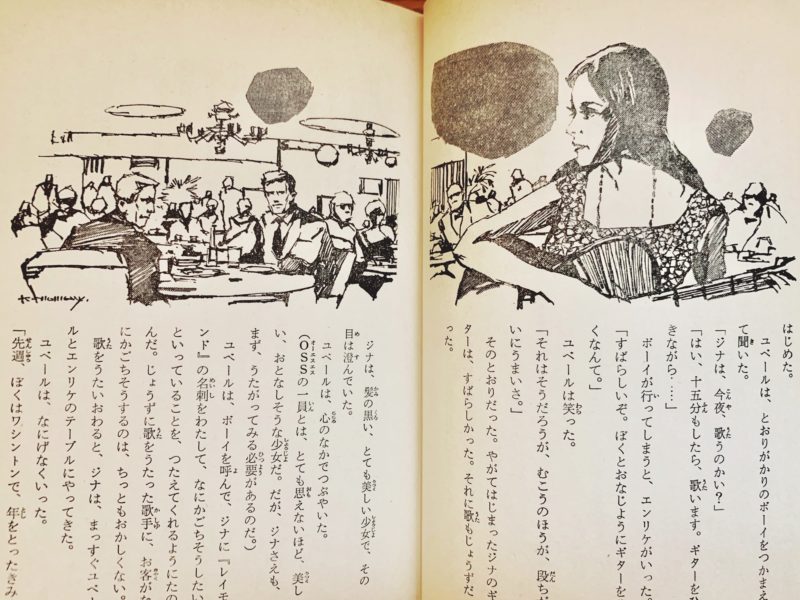 はじめた。
ユベールは、とおりがかりのボーイをつかまえ
て聞いた。
「ジナは、今夜、歌うのかい？」
「はい、十五分もしたら、歌います。ギターをひ
きながら……」
ボーイが行ってしまうと、エンリケがいった。
「すばらしいぞ。ぼくとおなじようにギターを
くなんて。」
ユベールは笑った。
「それはそうだろうが、むこうのほうが、段ちが
いにうまいさ。」
そのとおりだった。やがてはじまったジナのギ
ターは、すばらしかった。それに歌もじょうずだ
った。
ジナは、髪の黒い、とても美しい少女で、その
目は澄んでいた。
ユベールは、心のなかでつぶやいた。
（ＯＳＳの一員とは、とても思えないほど、美し
い、おとなしそうな少女だ。だが、ジナさえも、
まず、うたがってみる必要があるのだ。）
ユベールは、ボーイを呼んで、ジナに『レイモ
ンド』の名刺をわたして、なにかごちそうしたい
といっていることを、つたえてくれるようにたの
んだ。じょうずに歌をうたった歌手に、お客がな
にかごちそうするのは、ちっともおかしくない。
歌をうたいおわると、ジナは、まっすぐユベー
ルとエンリケのテーブルにやってきた。
ユベールは、なにげなくいった。
「先週、ぼくはワシントンで、年をとったきみ